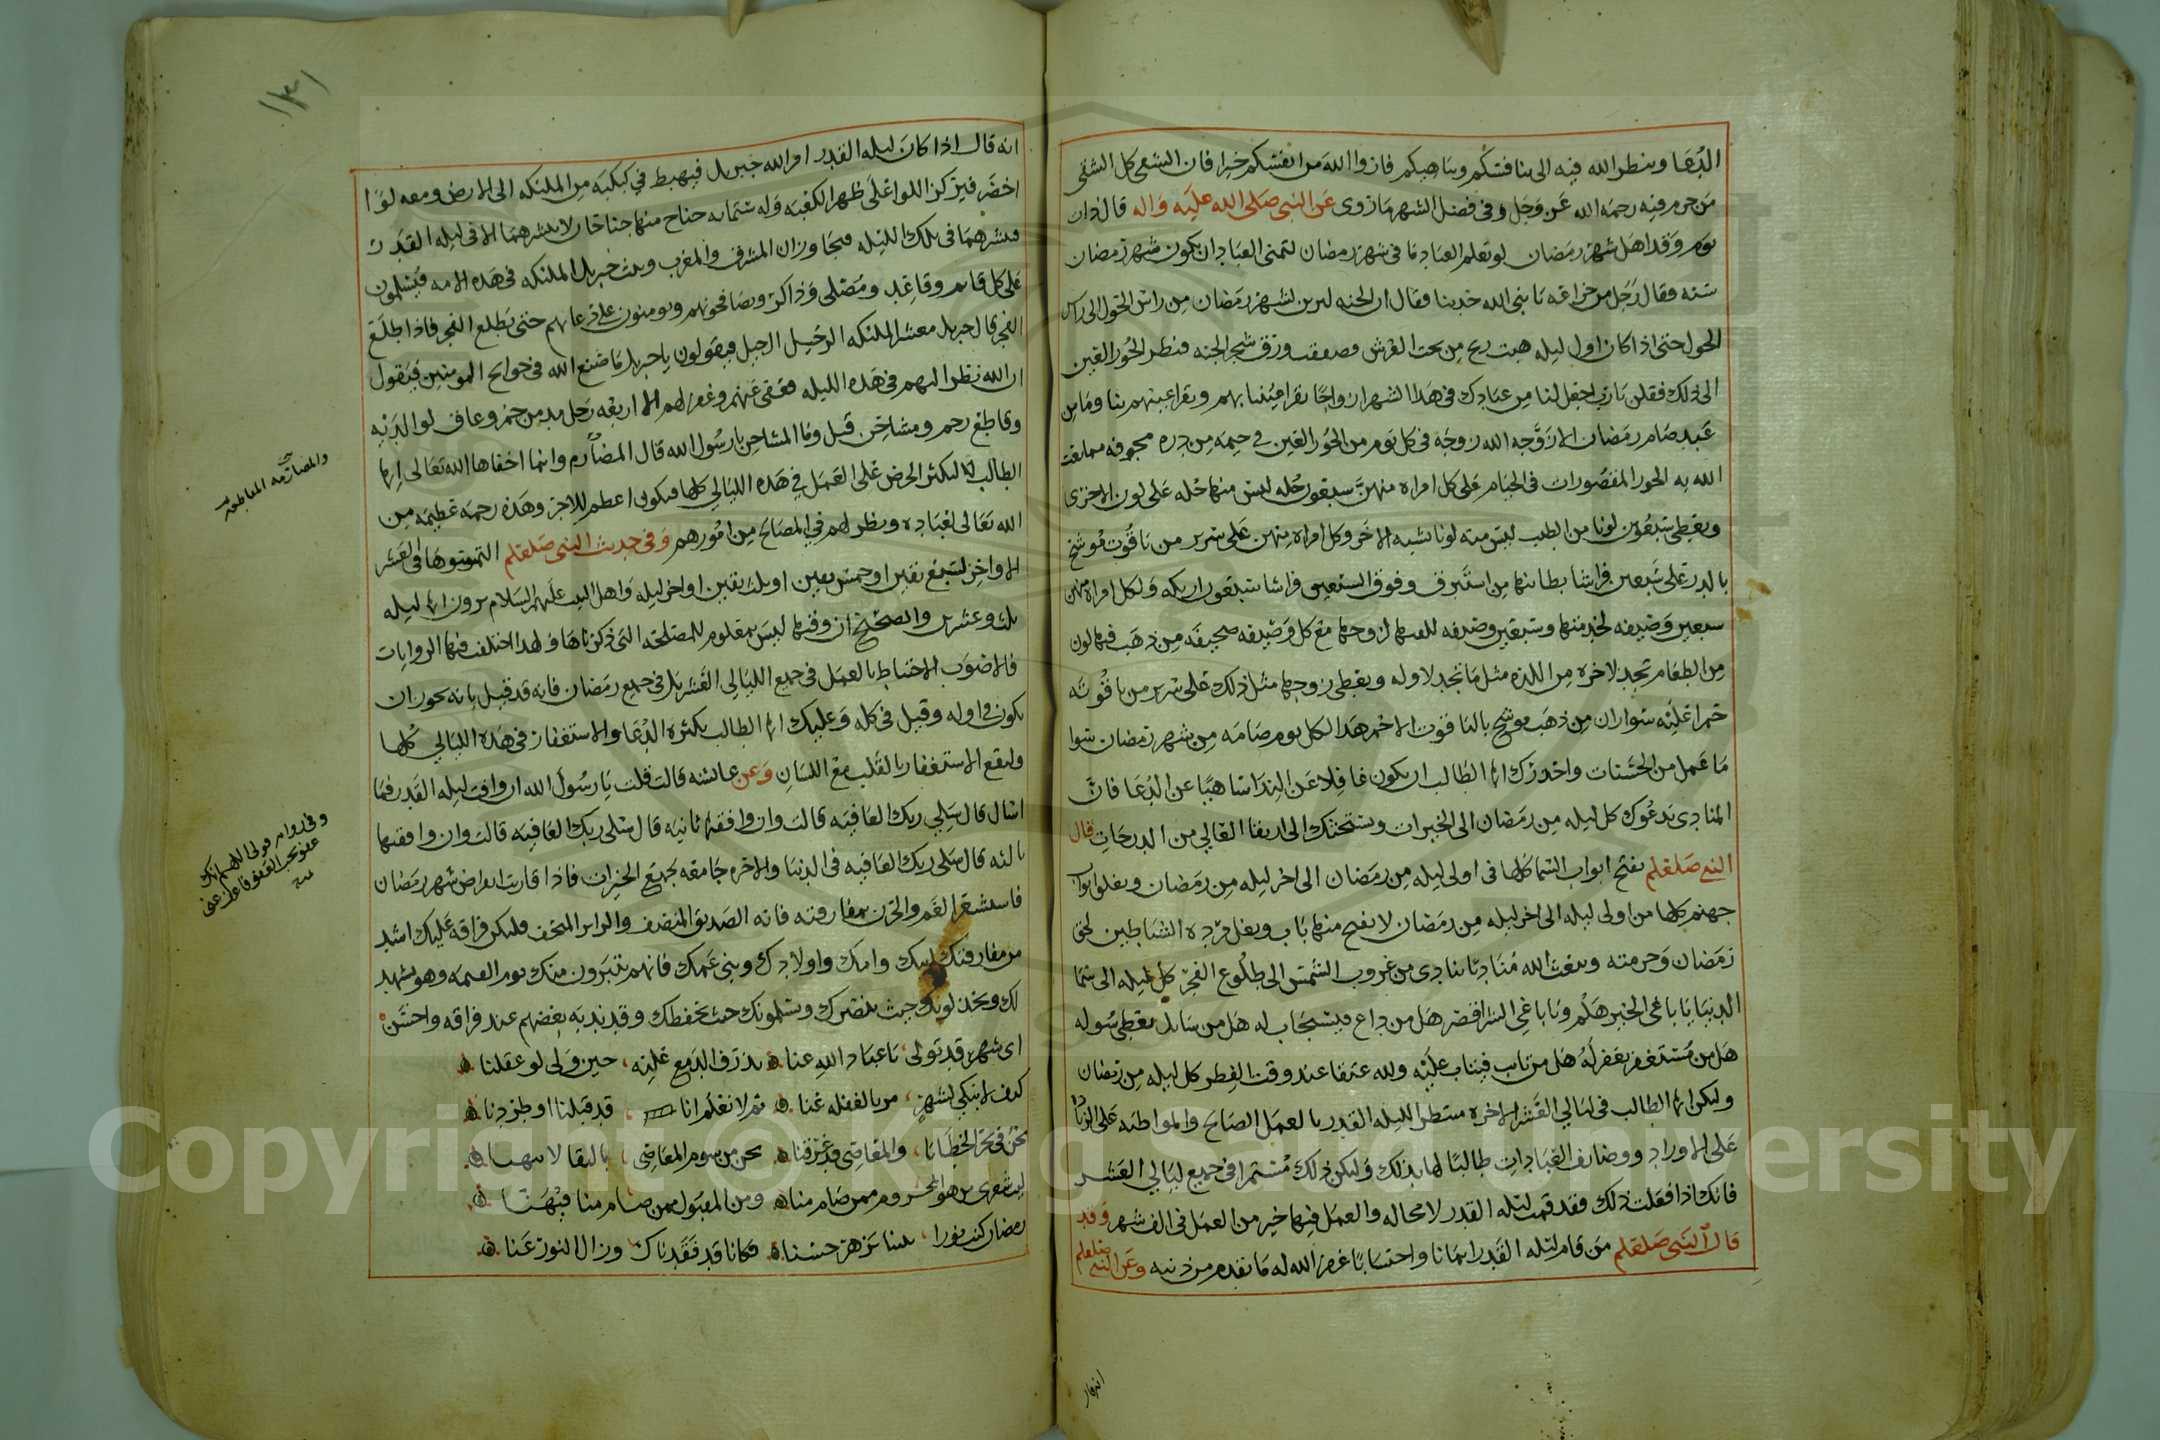 الدعا وينظر الله فيه الى منافستكم ويباهى بكم فاروا الله من انفسكم خيرا فان الشقى كل الشقى
من حرم فيه رحمه الله عز وجل وفى فضل الشهر ما روى عن النبى صلى الله عليه واله قال ذات
يوم وقد اهل شهر رمضان لو تعلم العباد ما فى شهر رمضان لتمنى العباد ان يكون شهر رمضان
سنه وقال رجل من خزاعه يا نبى الله حدثنا فقال ان الجنه لتزين لشهر رمضان من راس الحول الى راس
الحول حتى اذا كان اول ليله هبت ريح من تحت العرش فصفقت ورق شجر الجنه فنظر الحور العين
الى ذلك فقلن يا رب اجعل لنا من عبادك فى هذا الشهر ازواجا تقر اعيننا بهم وتقر اعينهم بنا وما من
عبد صام رمضان الا زوجه الله زوجه فى كل يوم من الحور العين فى خيمه من دره مجوفه مما نعت
الله به الحور المقصورات فى الخيام على كل امراه منهن سبعون حله ليس منها حله على لون الاخرى
ويعطى سبعون لونا من الطيب ليس منه لونا يشبه الاخر وكل امراه منهن على سرير من ياقوت موشح
بالدر على سبعين فراشا بطائنها من استبرق وفوق السبعين فراشا سبعون اريكه ولكل امراه منهن
سبعين وصيفه لخدمتها وسبعين وصيفه للقيها زوجها مع كل وصيفه صحيفه من ذهب فيها لون
من الطعام تجد لاخره من اللذه مثل ما تجد لاوله ويعطى زوجها مثل ذلك على سرير من ياقوته
حمرا عليه سواران من ذهب موشح بالياقوت الاحمر هذا لكل يوم صامه من شهر رمضان سوا
ما عمل من الحسنات واحذرك ايها الطالب ان يكون غافلا عن الندا ساهيا عن الدعا فان
المنادى يدعوك كل ليله من رمضان الى الخيرات ويستحثك الى ارتقا العالى من الدرجات قال
النبى صلعلم يفتح ابواب السما كلها فى اولى ليله من رمضان الى اخر ليله من رمضان ويغلق ابواب
جهنم كلها من اولى ليله الى اخر ليله من رمضان لا يفتح منها باب ويغل مرده الشياطين لحق
رمضان وحرمته ويبعث الله مناديا ينادى من غروب الشمس الى طلوع الفجر كل ليله الى سما
الدنيا يا باغى الخير هلم ويا باغى الشر اقصر هل من داع فيستجاب له هل من سائل يعطى سوله
هل من مستغفر يغفر له هل من تائب فيتاب عليه ولله عتقا عند وقت الفطر كل ليله من رمضان
ولتكن ايها الطالب فى ليالى العشر الاخره منتظر الليله القدر بالعمل الصالح والمواظبه على
على الاوراد ووضائف العبادات طالبا لها بذلك وليكن ذلك مستمرا فى جميع ليالى العشر
فانك اذا فعلت ذلك فقد قمت ليله القدر لا محاله والعمل فيها خير من العمل فى الف شهر وقد
قال النبى صلعلم من قام ليله القدر ايمانا واحتسابا غفر الله له ما تقدم من ذنبه وعن النبى صلعلم
انه قال
١٣١
انه قال اذا كان ليله القدر امر الله جبريل فيهبط فى كبكبه من الملئكه الى الارض ومعه لوا
اخضر فيركز اللوا على ظهر الكعبه وله ستمايه جناح منها جناحان لا ينشرهما الا فى ليله القدر
فينشرهما فى تلك الليله فيجاوزان المشرق والمغرب ويبث جبريل الملئكه فى هذه الامه فيسلمون
على كل قائم وقاعد ومصلى وذاكر ويصافحونهم ويومنون على دعائهم حتى يطلع الفجر فاذا طلع
الفجر قال جبريل معشر الملئكه الرحيل الرحيل فيقولون يا جبريل ما صنع الله فى حوائج المومنين فيقول
ان الله نظر اليهم فى هذه الليله فعفى عنهم وغفر لهم الا اربعه رجل مدمن خمر وعاق لوالديه
وقاطع رحم ومشاحن قيل وما المشاحن يا رسول الله قال المضارم وانما اخفاها الله تعالى ايها
الطالب لتكثر الحرص على العمل فى هذه الليالى كلها فيكون اعظم للاجر وهذه رحمه عظيمه من
الله تعالى لعباده ونظر لهم فى المصالح من امورهم وفى حديث النبى صلعلم التمسوها فى العشر
الاواخر لسبع بقين او خمس بقين او ثلث بقين او اخر ليله واهل البيت عليهم السلام يرون انها ليله
ثلث وعشرين والصحيح ان وقتها ليس بمعلوم للمصلحه التى ذكرناها ولهذا اختلفت فيها الروايات
فالاصوب الاحتياط بالعمل فى جميع الليالى العشر بل فى جميع رمضان فانه قد قيل بانه يجوز ان
يكون فى اوله وقيل فى كله وعليك ايها الطالب بكثره الدعا والاستغفار فى هذه الليالى كلها
وليقع الاستغفار بالقلب مع اللسان وعن عائشه قالت قلت يا رسول الله ان وافيت ليله القدر فما
اسال قال سلى ربك العافيه قالت وان وافقتها ثانيه قال سلى ربك العافيه قالت وان وافقتها
ثالثه قال سلى ربك العافيه فى الدنيا والاخره جامعه لجميع الخيرات فاذا قاربت انقراض شهر رمضان
فاستشعر الغم والحزن بمفارقته فانه الصديق المنصف والزائر المتحف وليكن فراقه عليك اشد
من مفارقتك ابيك وامك واولادك وبنى عمك فانهم يتبرون منك يوم القيمه وهو يشهد
لك ويخذلونك حيث ينصرك ويسلمونك حيث يحفظك وقد ندبه بعضهم عند فراقه واحسن
اى شهر قد تولى يا عباد الله عنا تذرف الدمع عليه حين ولى لو عقلنا
كيف لا نبكى لشهر مر بالغفله عنا ثم لا نعلم انا قد قبلنا او طردنا
نحن فى بحر الخطايا والمعاصى قد غرقنا نحن من شوم المعاصى
ليت شعرى من هو المحروم ممن صام منا ومن المقبول ممن صام منا فيهنا
رمضان كنت نورا بيننا تزهر حسنا فكانا قد فقدناك وزال النور عنا
والمصارمه المقاطعه
وفى روايه قولى اللهم انك
عفو تحب العفو فاعف عنى